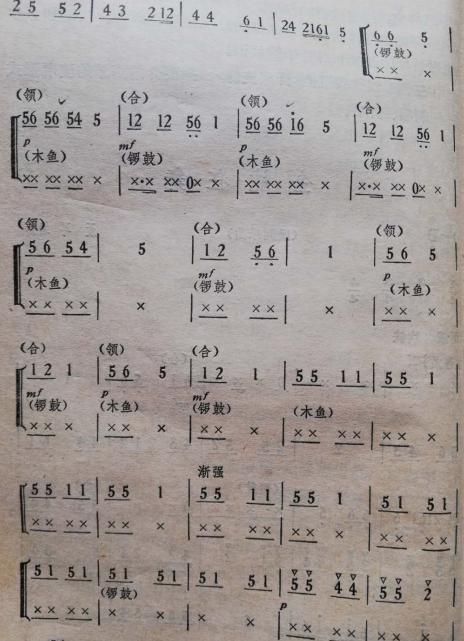 2 5 5 2 | 4 3 2 12 | 4 4 6 1 | 24 2161 5 | 6 6 5 |
(锣鼓)
× × × |
(领) (合) (领) (合)
56 56 54 5 | 12 12 56 1 | 56 56 16 5 | 12 12 56 1
p mf p mf
(木鱼) (锣鼓) (木鱼) (锣鼓)
×× ×× ×× × | ×·× ×× 0× × | ×× ×× ×× × | ×·× ×× 0× × |
(领) (合) (领)
5 6 5 4 | 5 | 1 2 5 6 | 1 | 5 6 5 |
p mf p
(木鱼) (锣鼓) (木鱼)
× × × × | × | × × × × | × | × × × |
(合) (领) (合)
1 2 1 | 5 6 5 | 1 2 1 | 5 5 1 1 | 5 5 1 |
mf p mf
(锣鼓) (木鱼) (锣鼓) (木鱼)
× × × | × × × | × × × | × × × × | × × × |
渐强
5 5 1 1 | 5 5 1 | 5 5 1 1 | 5 5 1 | 5 1 5 1 |
× × × × | × × × | × × × × | × × × | × × × × |
5 1 5 1 | 5 1 5 1 | 5 1 5 1 | 5 5 4 4 | 5 5 2 |
(锣鼓) p
× × × × | × × | × × | × × × × | × × × |